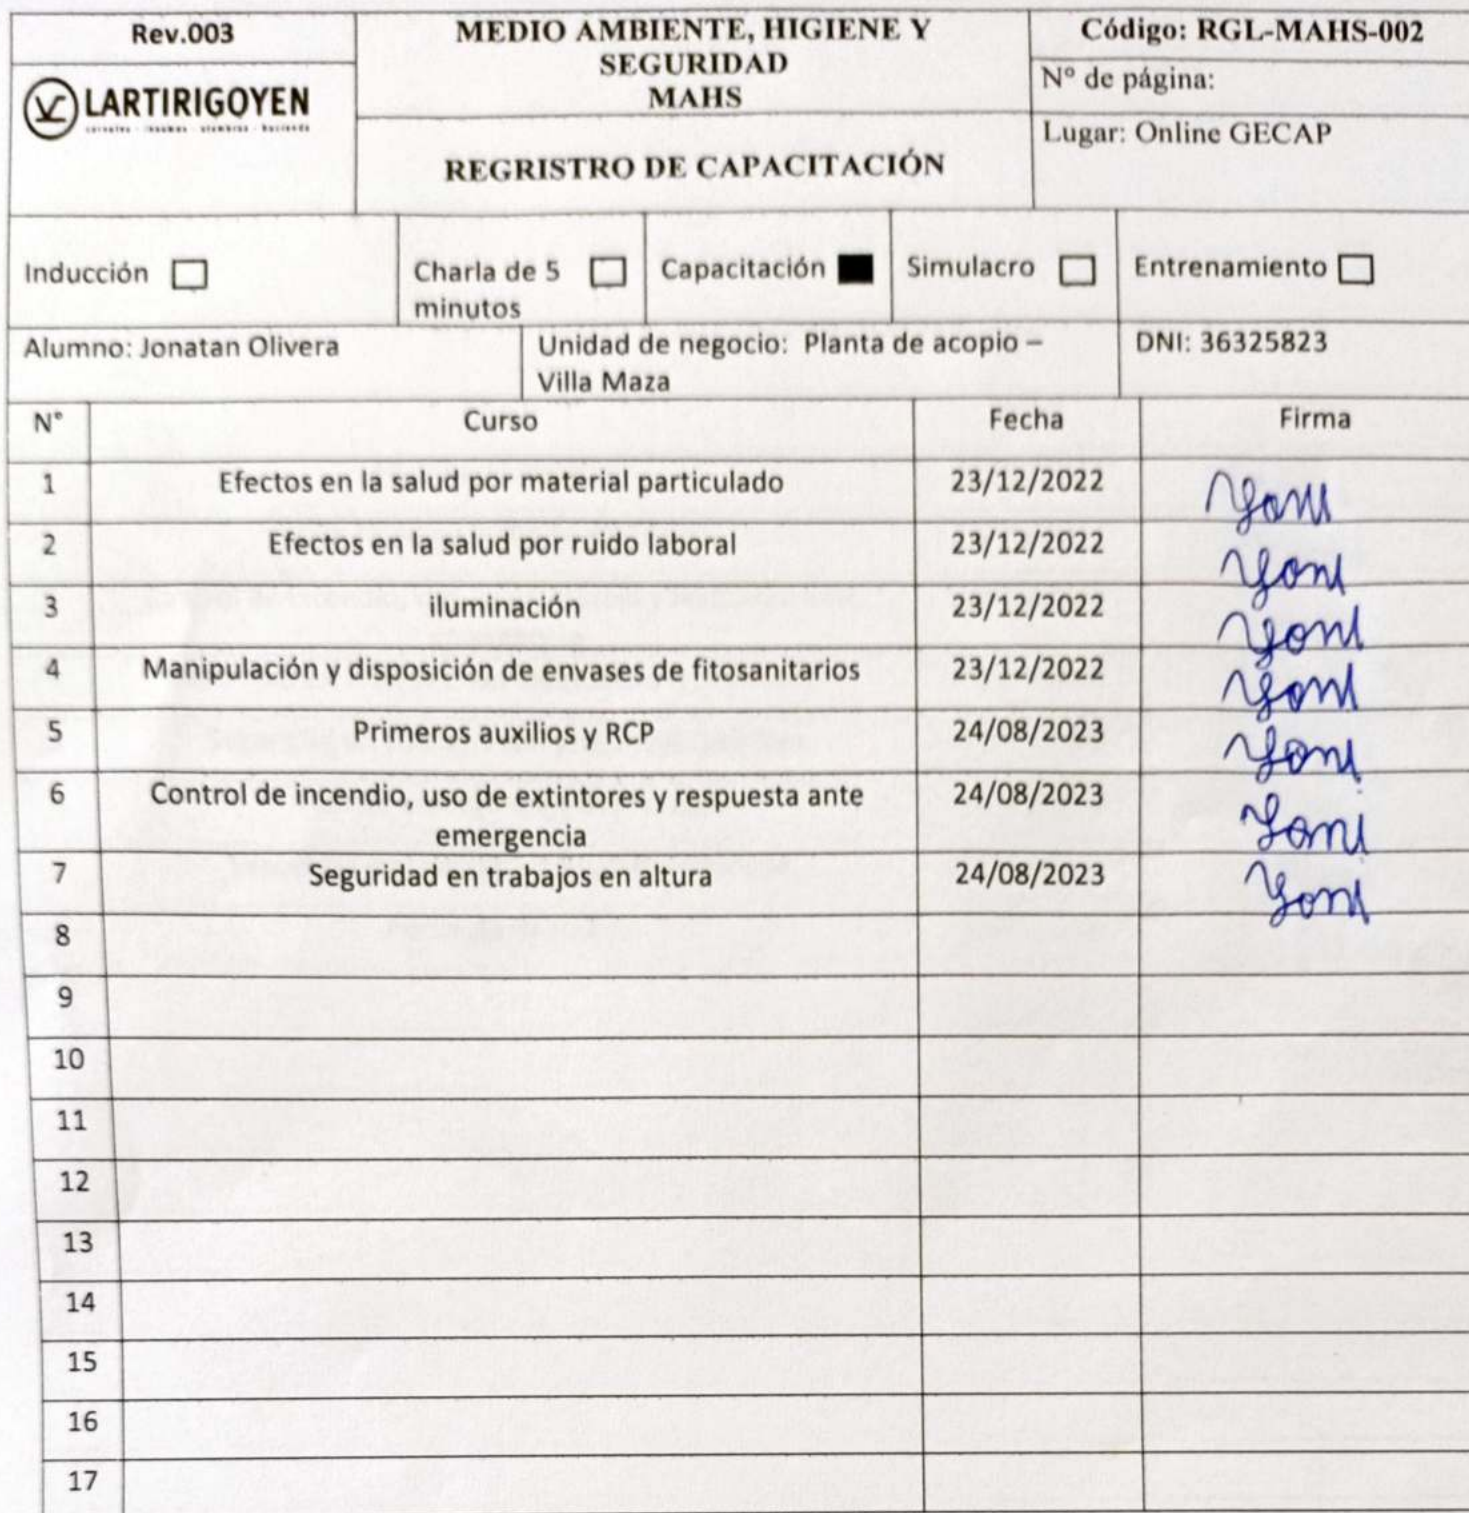 Rev.003
LARTIRIGOYEN
cereales - insumos - siembras - hacienda
MEDIO AMBIENTE, HIGIENE Y
SEGURIDAD
MAHS
REGRISTRO DE CAPACITACIÓN
Código: RGL-MAHS-002
N° de página:
Lugar: Online GECAP
Inducción
Charla de 5
minutos
Capacitación
Simulacro
Entrenamiento
Alumno: Jonatan Olivera
Unidad de negocio: Planta de acopio –
Villa Maza
DNI: 36325823
N° Curso Fecha Firma
1 Efectos en la salud por material particulado 23/12/2022 Yoni
2 Efectos en la salud por ruido laboral 23/12/2022 Yoni
3 iluminación 23/12/2022 Yoni
4 Manipulación y disposición de envases de fitosanitarios 23/12/2022 Yoni
5 Primeros auxilios y RCP 24/08/2023 Yoni
6 Control de incendio, uso de extintores y respuesta ante 24/08/2023 Yoni
emergencia
7 Seguridad en trabajos en altura 24/08/2023 Yoni
8
9
10
11
12
13
14
15
16
17